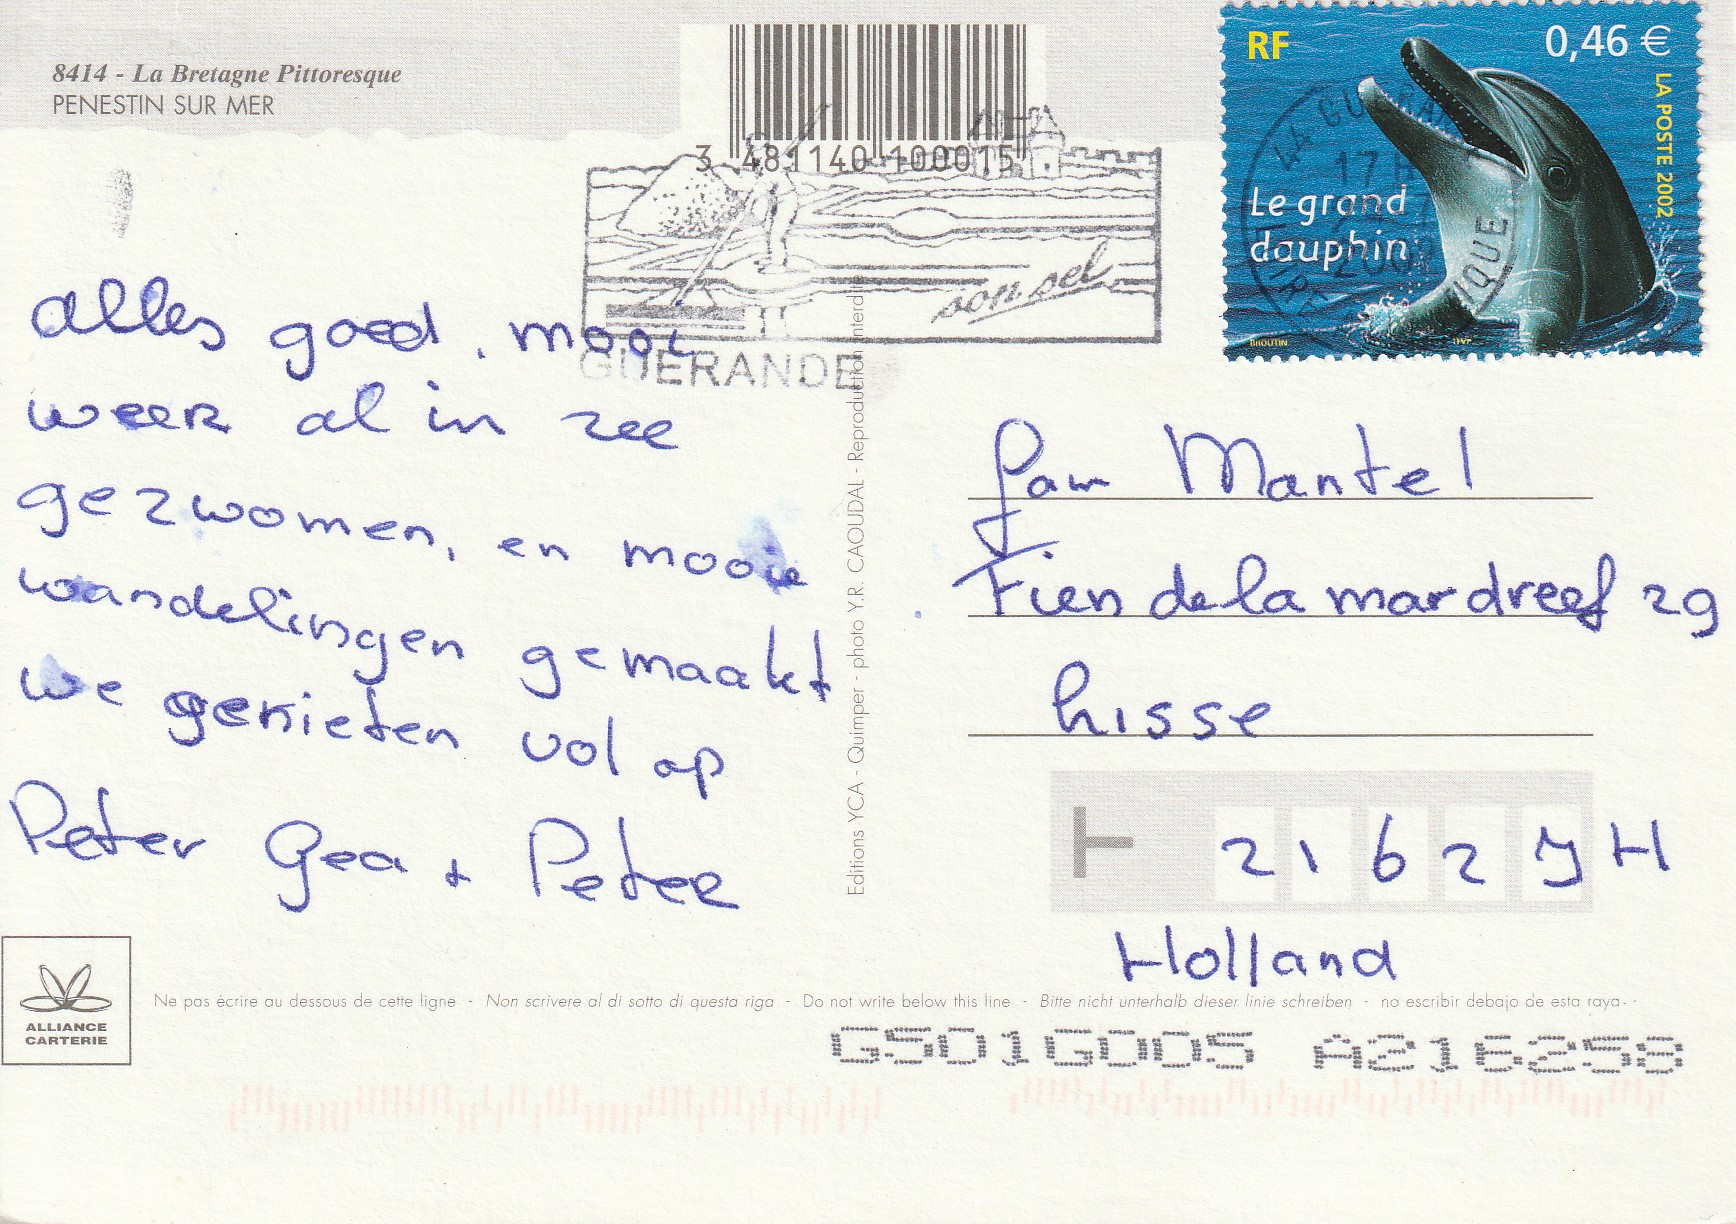 8414 - La Bretagne Pittoresque
PENESTIN SUR MER
3 481140 100015
son sel
GUERANDE
RF
0,46 €
LA POSTE 2002
Le grand
dauphin
BROUTIN
ITVF
44 GUERANDE
17 H
alles goed, mooi
weer al in zee
gezwomen, en mooie
wandelingen gemaakt
we genieten vol op
Peter Gea + Peter
Editions YCA - Quimper - photo Y.R. CAOUDAL - Reproduction interdite
Fam Mantel
Fien de la mardreef 29
Lisse
2162 JH
Holland
ALLIANCE
CARTERIE
Ne pas écrire au dessous de cette ligne - Non scrivere al di sotto di questa riga - Do not write below this line - Bitte nicht unterhalb dieser linie schreiben - no escribir debajo de esta raya - -
GS01GDDS A216258